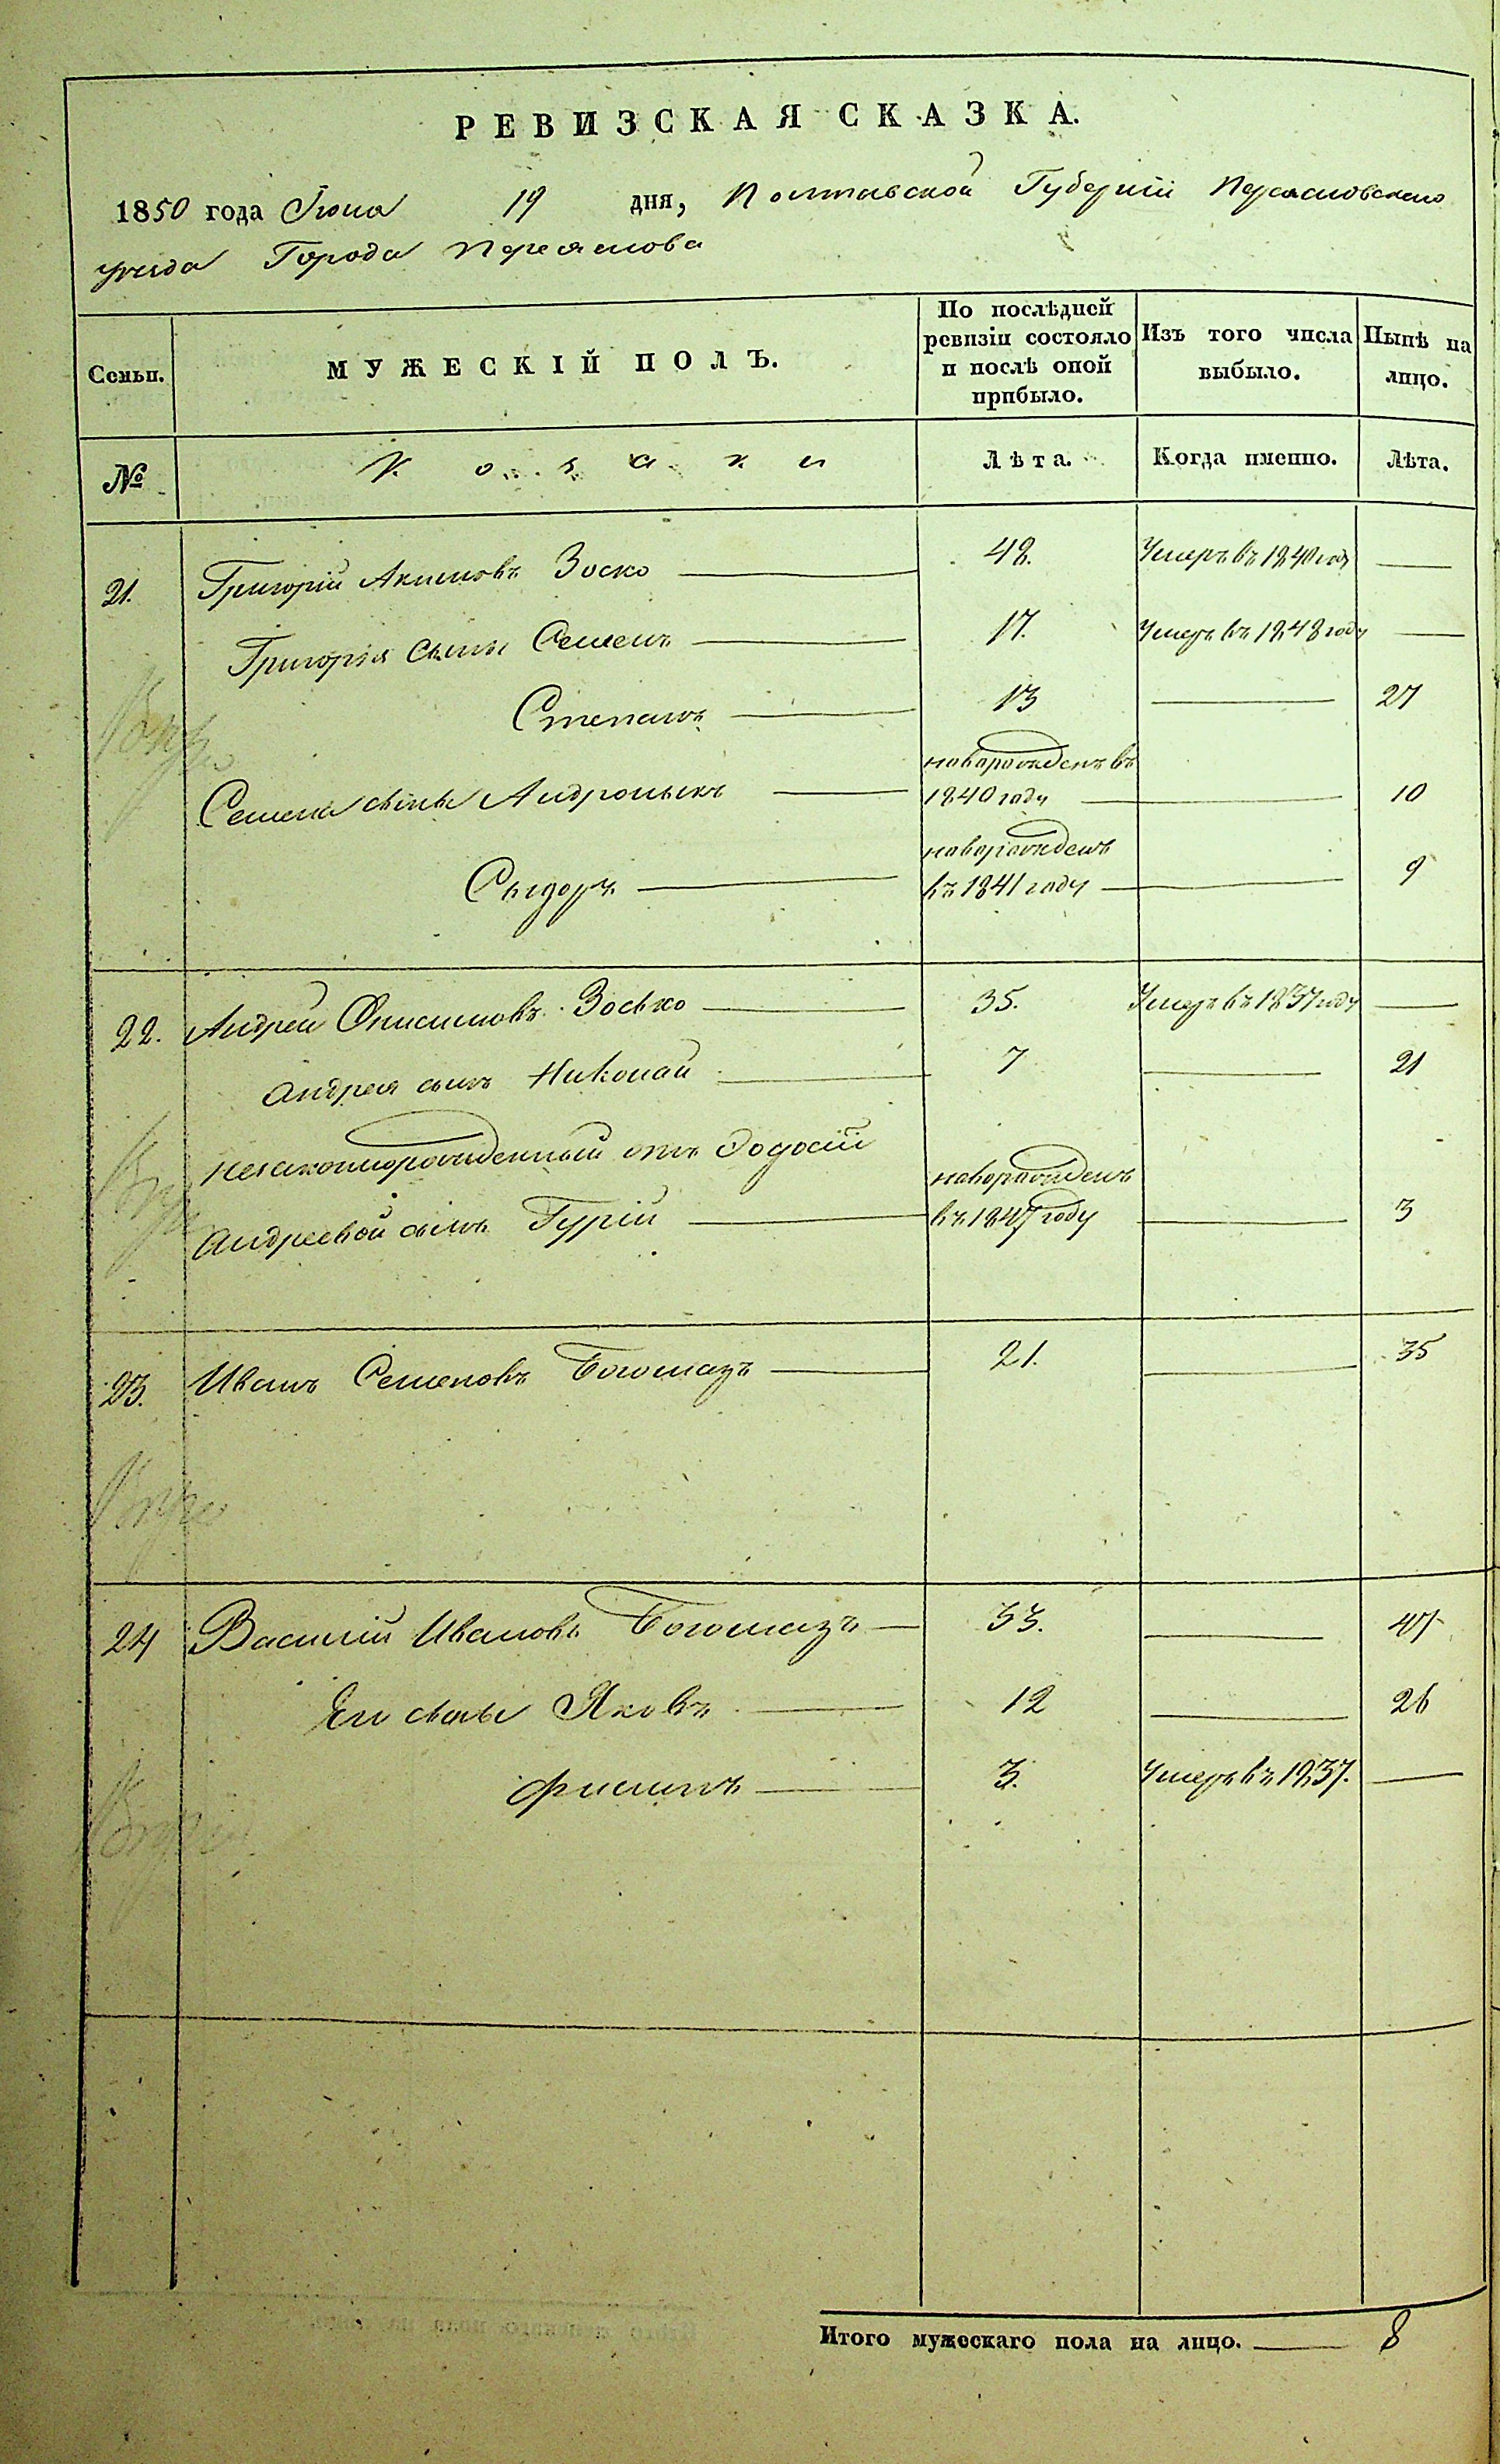 РЕВИЗСКАЯ СКАЗКА.
1850 года Іюна 19 дня, Полтавской Губерніи Переясловскаго
уезда Города Переяслова
Семьи. МУЖЕСКІЙ ПОЛЪ. По послѣдней ревизіи состояло и послѣ оной прибыло. Изъ того числа выбыло. Нынѣ на лицо.
№ Козаки Лѣта. Когда именно. Лѣта.
21. Григорій Акимовъ Зоско 48. Умеръ въ 1840 годя
Григорія сыны Семенъ 17. Умеръ въ 1848 году
Степанъ 13 27
новорожденъ въ
Семена сыны Андроникъ 1840 году 10
новорожденъ
Сыдоръ въ 1841 году 9
22. Андрей Онисимовъ Зосько 35. Умеръ въ 1837 году
Андрея сынъ Николай 7 21
незаконнорожденный отъ Федосіи
новорожденъ
Андреевой сынъ Гурій въ 1847 году 3
23. Иванъ Семеновъ Богомазъ 21. 35
24 Василій Ивановъ Богомазъ 33. 47
Его сыны Яковъ 12 26
Филипъ 3. Умеръ въ 1837.
Итого мужескаго пола на лицо. 8